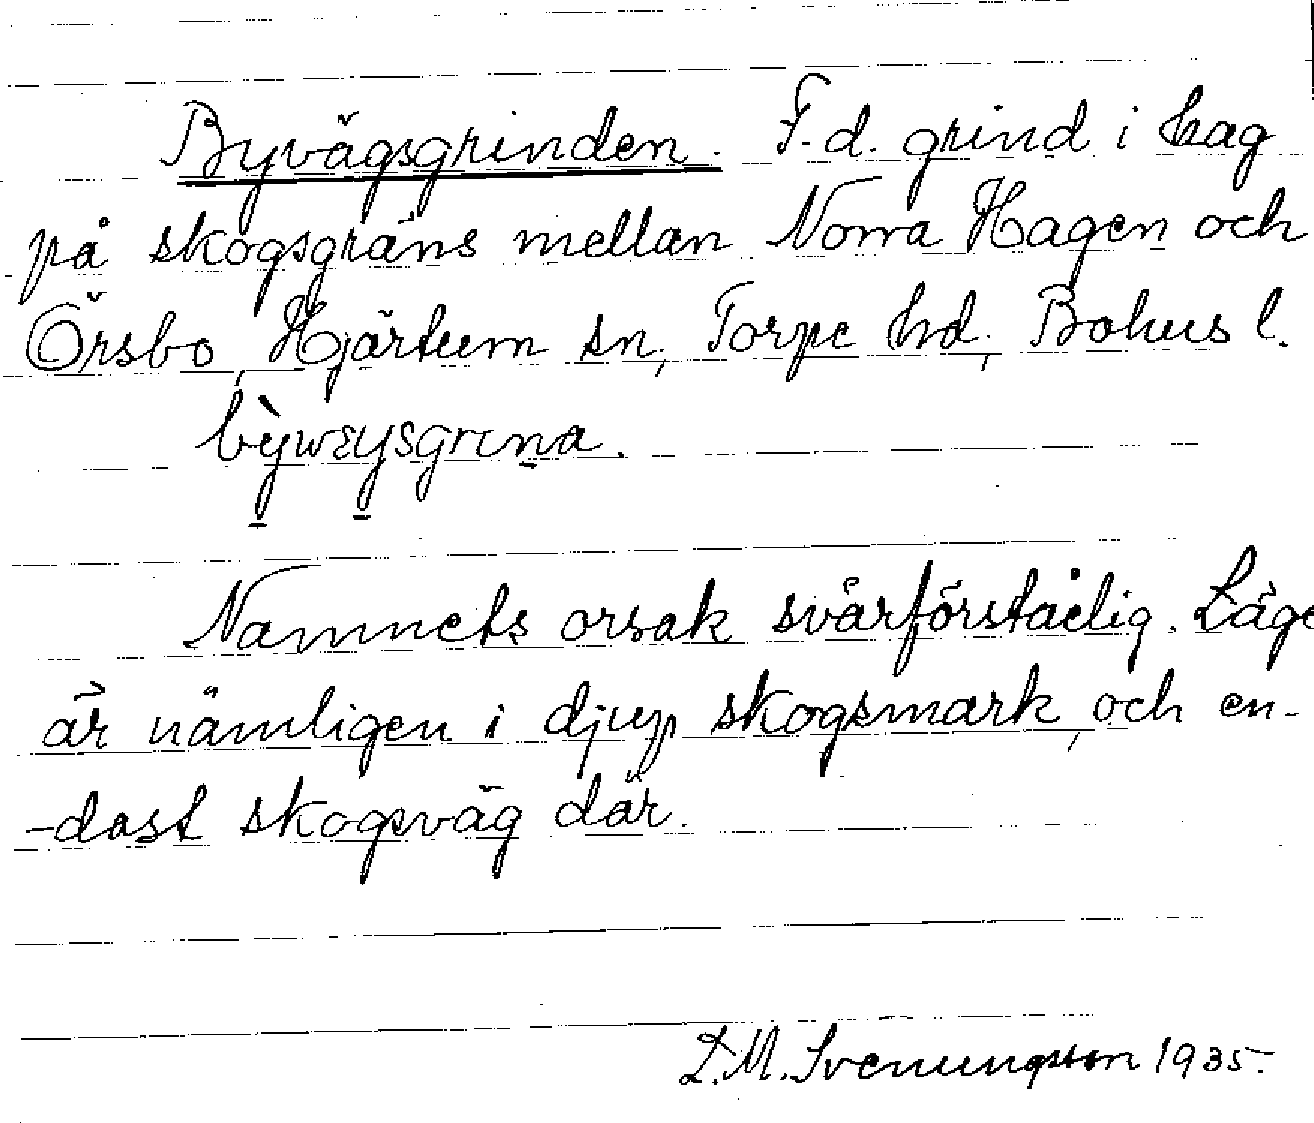 Byvägsgrinden. F.d. grind i hag
på skogsgräns mellan Norra Hagen och
Örsbo, Hjärtum sn, Torpe hd, Bohus l.
bỳwεysgrɩna.
Namnets orsak svårförståelig. Läge
är nämligen i djup skogsmark, och en-
-dast skogsväg där.
L.M. Svenungsson 1935.